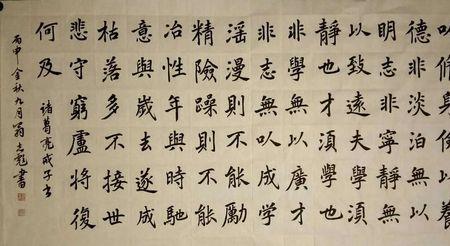 以脩身儉以養
德非淡泊無以
明志非寧靜無
以致遠夫學湏
靜也才湏學也
非學無以廣才
非志無以成学
滛漫則不能勵
精險躁則不能
冶性年與時馳
意與歲去遂成
枯落多不接世
悲守窮廬將復
何及
諸葛亮戒子书
丙申金秋九月翁志書